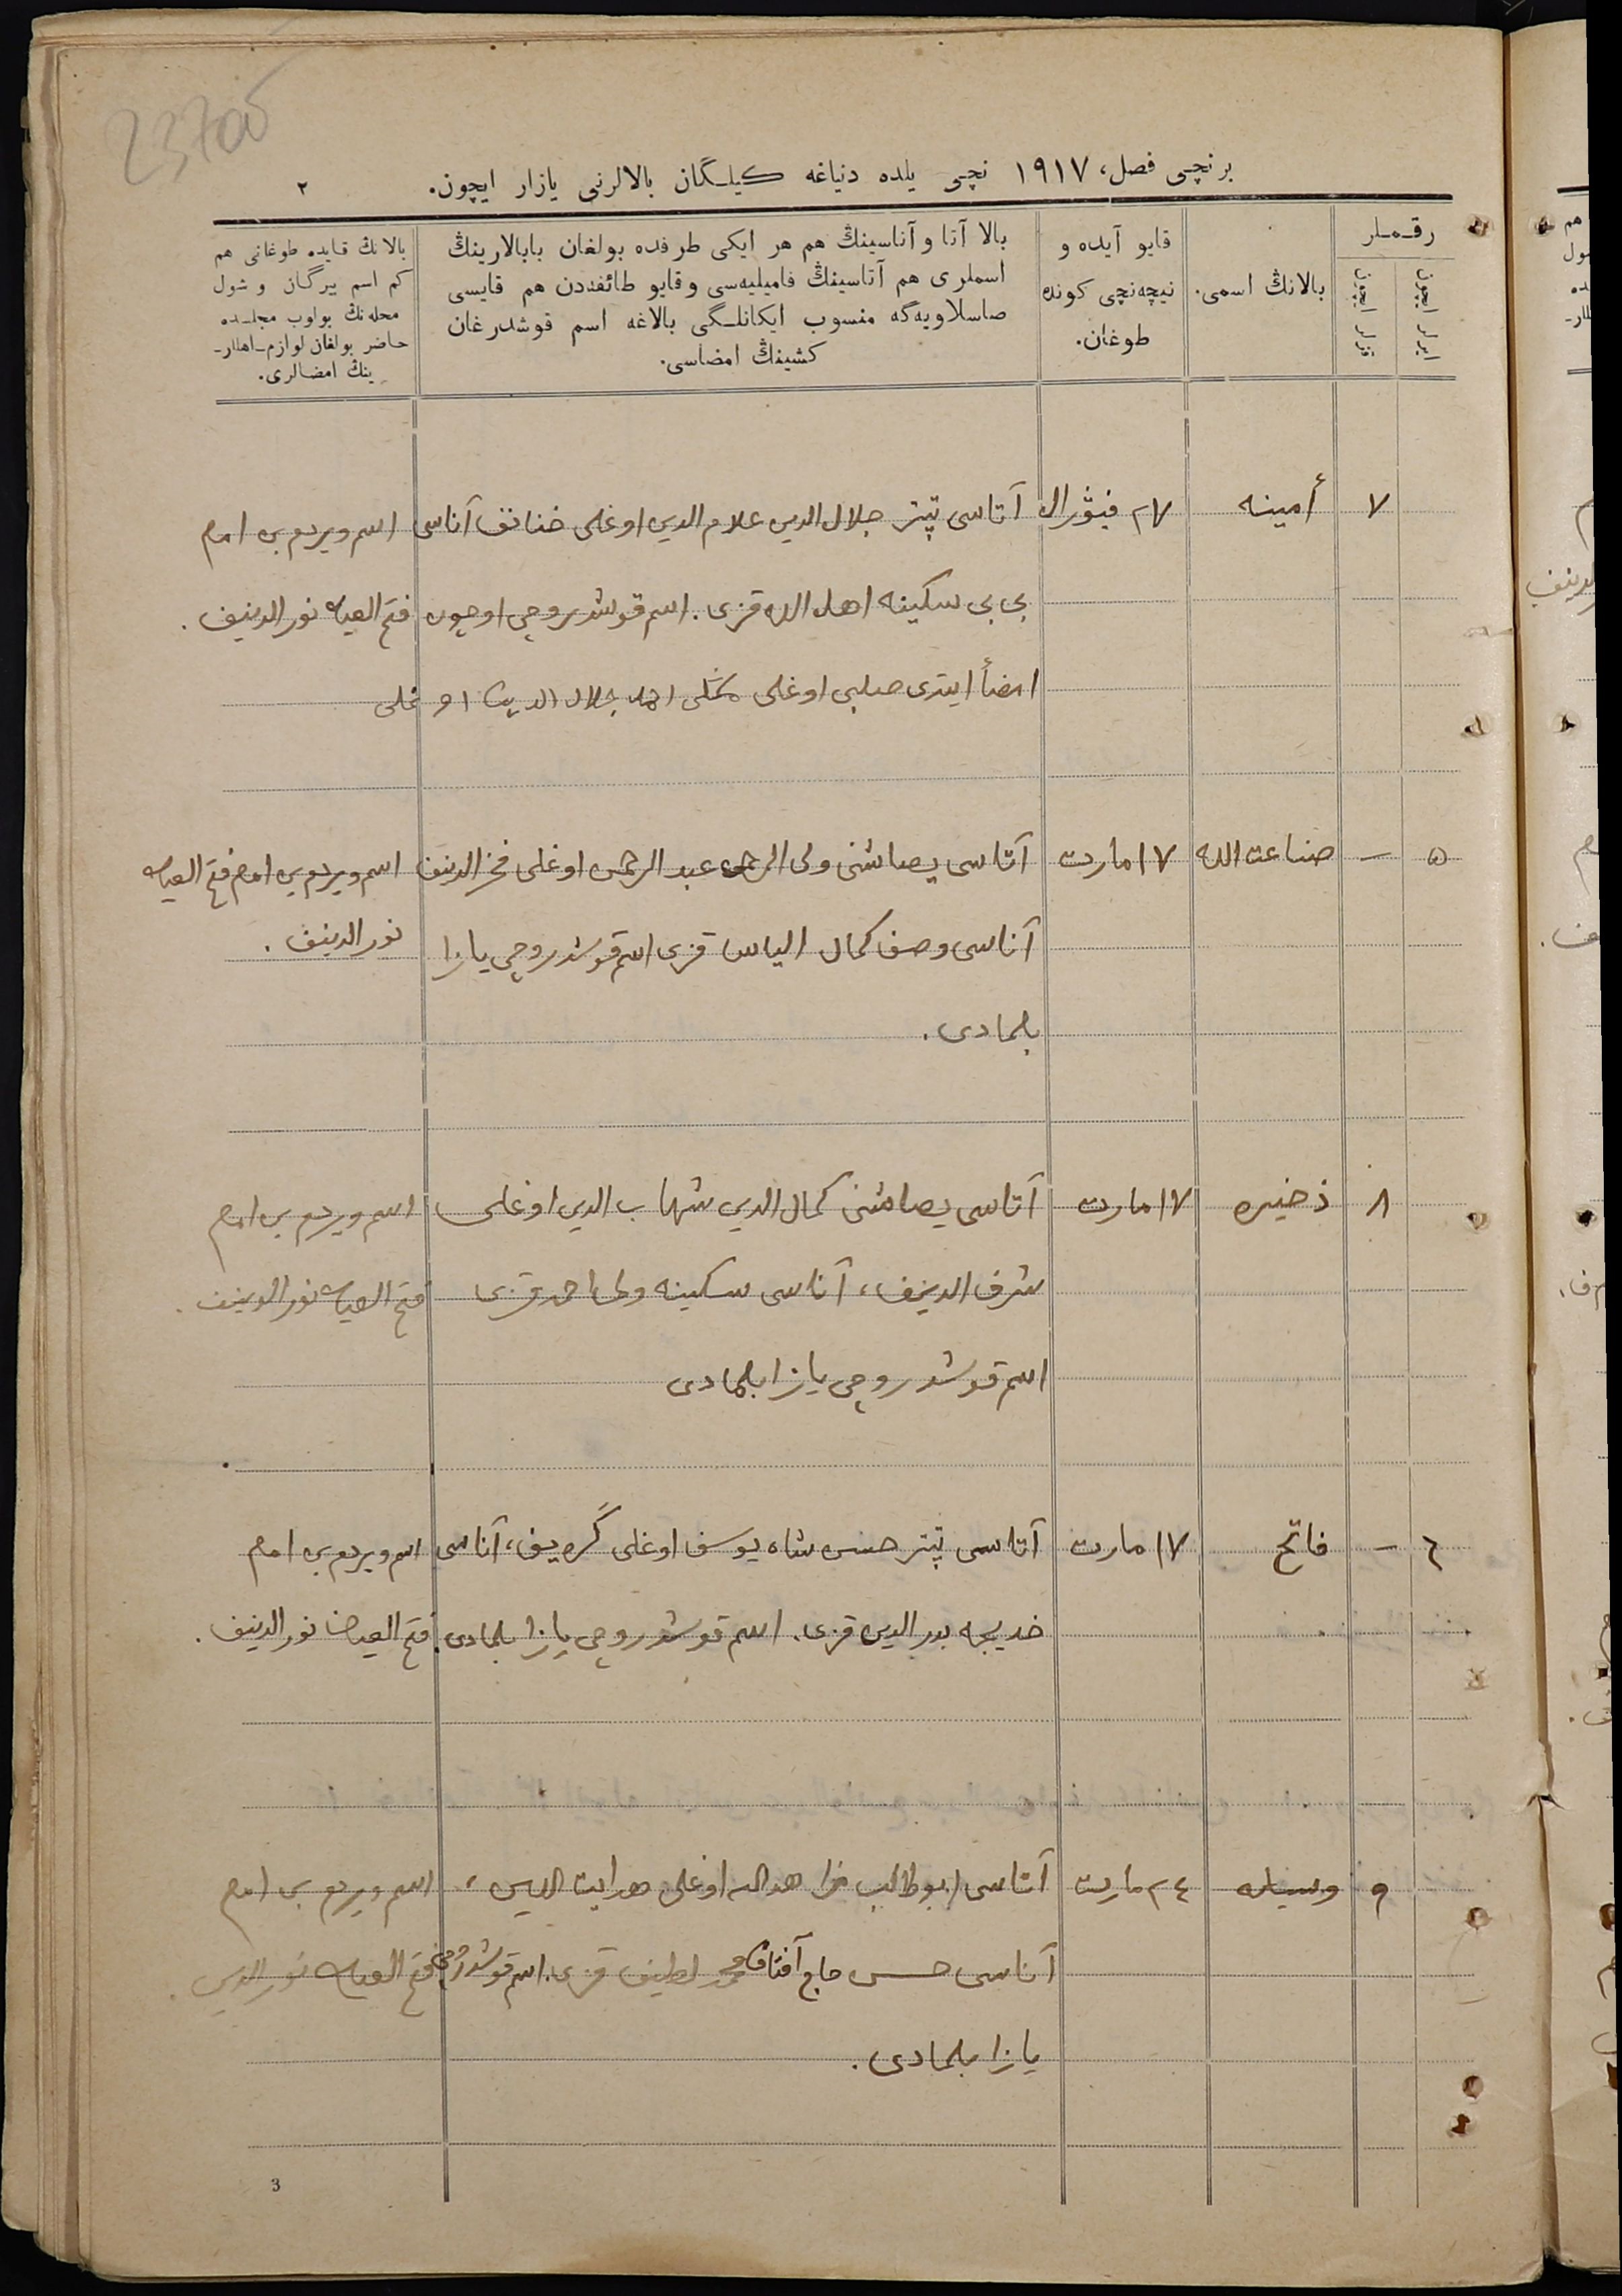 23700
برنچی فصل، ١٩١٧ نچی یلده دنیاغه كیلـگان بالالرنی یازار ایچون.
٢
رقـملر
ایرلر ایچون
قزلر ایچون
بالانڭ اسمی.
قایو آیده و
نیچه‌نچی كونده
طوغان.
بالا آتا و آناسینڭ هم هر ایكی طرفده بولغان بابالارینڭ
اسملری هم آتاسینڭ فامیلیه‌سی و قایو طائفه‌دن هم قایسی
صاسلاویه‌گه منسوب ایكانلـگی بالاغه اسم قوشدرغان
كشینڭ امضاسی.
بالانڭ قایده طوغانی هم
كم اسم بیرگان و شول
محله‌نڭ بولوب مجلـده
حاضر بولغان لوازم اهللر-
ینڭ امضالری.
٧
أمینه
٢٧ فیؤرال
آتاسی تپتر جلال الدین علام الدین اوغلی آناسی
بی بی سكینه اهل الله قزی. اسم قوشدروچی اوچون
امضأ ایتدی اوغلی جلال الدین اوغلی
اسم ویردم بن امام
فتح نورالدینف.
٥
—
صناعت الله
١٧ مارت
آتاسی یصاشنی ولی الرحمن عبد الرحمن اوغلی فخرالدینف
آناسی وصف كمال الیاس قزی اسم قوشدروچی یازا
بلمادی.
اسم ویردم بن امام فتح
نورالدینف.
٨
ذخیره
١٧ مارت
آتاسی یصاشنی كمال الدین شهاب الدین اوغلی
شرف الدینف، آناسی سكینه ولی احمد قزی
اسم قوشدروچی یازا بلمادی
اسم ویردم بن امام
فتح نورالدینف.
٦
—
فاتح
١٧ مارت
آتاسی تپتر حسن شاه یوسف اوغلی گره‌یف، آناسی
خدیجه بدر الدین قزی. اسم قوشدروچی یازا بلمادی.
اسم ویردم بن امام
فتح نورالدینف.
٩
وسیله
٢٤ مارت
آتاسی ابوطالب اوغلی هدایت الدین،
آناسی حاج آفتاب محمد لطیف قزی. اسم قوشدروچی
یازا بلمادی.
اسم ویردم بن امام
فتح نورالدین.
3